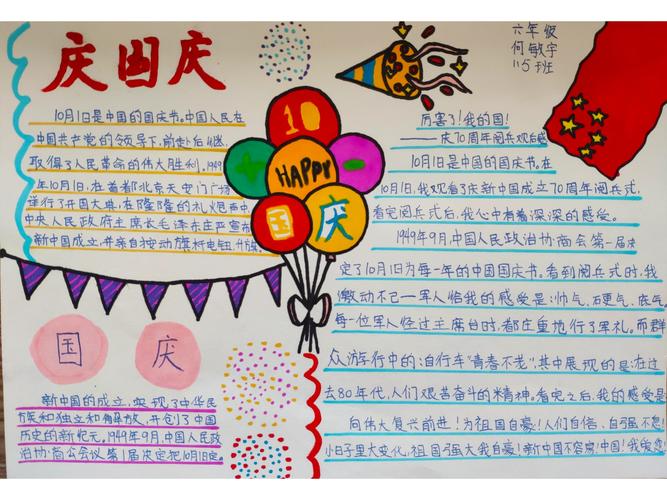 庆国庆
10月1日是中国的国庆节。中国人民在
中国共产党的领导下,前赴后继,
取得了人民革命的伟大胜利。1949
年10月1日,在首都北京天安门广场
举行了开国大典,在隆隆的礼炮声中,
中央人民政府主席长毛泽东庄严宣布
新中国成立,并亲自按动旗杆电钮,升旗。
国 庆
新中国的成立,实现了中华民
族和独立和解放,开创了中国
历史的新纪元。1949年9月,中国人民政
治协商会议第1届决定把10月1日定。
10
HAPPY
国
庆
六年级
何敏宇
115班
厉害了!我的国!
——庆70周年阅兵观后感
10月1日是中国的国庆节。在
10月1日,我观看了庆新中国成立70周年阅兵式,
看完阅兵式后,我心中有着深深的感受。
1949年9月,中国人民政治协商会第一届决
定了10月1日为每一年的中国国庆节。看到阅兵式时,我
激动不已一军人给我的感受是:帅气。硬气。底气。
每一位军人经过主席台时,都庄重地行了军礼。而群
众游行中的:自行车“青春不老”,其中展现的是:在过
去80年代,人们艰苦奋斗的精神。看完之后,我的感受是
向伟大复兴前进!为祖国自豪!人们自信、自强不息!
小日子里大变化,祖国强大我自豪!新中国不容易!中国!我爱您!